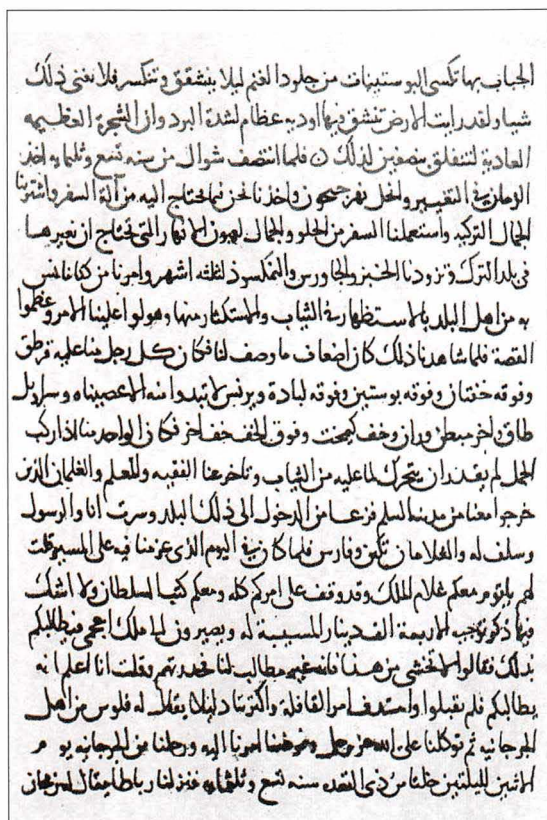 الجباب بها تكسى البوستينات من جلود الغنم ليلا يتشقق وتنكسر فلا يغنى ذلك
شيا ولقد رايت الارض تنشق فيها اوديه عظام لشدة البرد وان الشجرة العظيمه
العادية لتتفلق بنصفين لذلك ن فلما انتصف شوال من سنه تسع وثلثمايه اخذ
الزمان فى التغيير وانحل نهر جيحون واخذنا نحن فيما نحتاج اليه من آلة السفر واشترينا
الجمال التركيه واستعملنا السفر من الجلود الجمال لعبور الانهار التى نحتاج ان نعبرها
فى بلد الترك وتزودنا الخبز والجاورس والنمكسود لثلثه اشهر وامرنا من كنا نانس
به من اهل البلد بالاستظهار فى الثياب والاستكثار منها وهولوا علينا الامر وعظموا
القصة فلما شاهدنا ذلك كان اضعاف ما وصف لنا فكان كل رجل منا عليه قرطق
وفوقه خفتان وفوقه بوستين وفوقه لبادة وبرنس لا تبدوا منه الا عيناه وسراويل
طاق واخر مبطن وران وخف كيمخت وفوق الخف خف اخر فكان الواحد منا اذا ركب
الجمل لم يقدر ان يتحرك لما عليه من الثياب وتاخر عنا الفقيه والمعلم والغلمان الذين
خرجوا معنا من مدينه السلم فزعا من الدخول الى ذلك البلد وسرت انا والرسول
وسلف له والغلامان تكين وفارس فلما كان فى اليوم الذى عزمنا فيه على المسير قلت
لهم يا قوم معكم غلام الملك وقد وقف على امركم كله ومعكم كتب السلطان ولا اشك
فيها ذكر توجيه الاربعة الف دينار المسيبية له وتصيرون الى ملك اعجمى فيطالبكم
بذلك فقالوا لا تخشى من هذا فانه غير مطالب لنا فحذرتهم وقلت انا اعلم انه
يطالبكم فلم يقبلوا واستدف امر القافلة واكترينا دليلا يقال له قلوس من اهل
الجرجانيه ثم توكلنا على الله عز وجل وفوضنا امرنا اليه ورحلنا من الجرجانيه يوم
الاثنين لليلتين خلتا من ذى القعده سنه تسع وثلثمايه فنزلنا رباطا يقال له زمجان